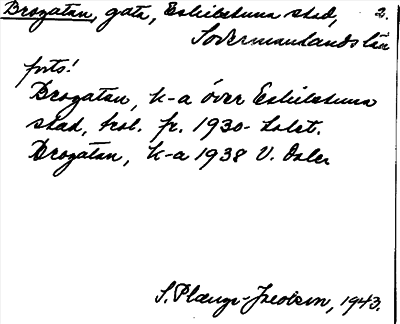 Brogatan, gata, Eskilstuna stad, 2.
Södermanlands län
forts!
Brogatan, k-a över Eskilstuna
stad, trol. fr. 1930-talet.
Brogatan, k-a 1938 V. Dalen
S. Plænge-Jacobson, 1943.